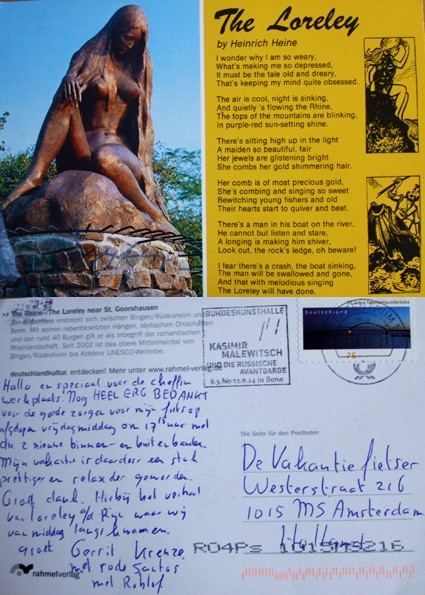 The Loreley
by Heinrich Heine
I wonder why I am so weary,
What's making me so depressed,
It must be the tale old and dreary,
That's keeping my mind quite obsessed.
The air is cool, night is sinking,
And quietly 's flowing the Rhine,
The tops of the mountains are blinking,
In purple-red sun-setting shine.
There's sitting high up in the light
A maiden so beautiful, fair
Her jewels are glistening bright
She combs her gold shimmering hair.
Her comb is of most precious gold,
She's combing and singing so sweet
Bewitching young fishers and old
Their hearts start to quiver and beat.
There's a man in his boat on the river,
He cannot but listen and stare,
A longing is making him shiver,
Look out, the rock's ledge, oh beware!
I fear there's a crash, the boat sinking,
The man will be swallowed and gone,
And that with melodious singing
The Loreley will have done.
The Rhine - The Loreley near St. Goarshausen
erstreckt sich zwischen Bingen/Rüdesheim und
Bonn. Mit seinen rebenbesetzten Hängen, idyllischen Ortschaften
und den rund 40 Burgen gilt er als Inbegriff der romantischen
Rheinlandschaft. Seit 2002 ist das obere Mittelrheintal von
Bingen/Rüdesheim bis Koblenz UNESCO-Welterbe.
deutschlandkultur. entdecken! Mehr unter www.rahmel-verlag.de
BUNDESKUNSTHALLE
KASIMIR
MALEWITSCH
UND DIE RUSSISCHE
AVANTGARDE
8.3. bis 22.6.14 in Bonn
Deutschland
75
Hallo en speciaal voor de cheffin
werkplaats. Nog HEEL ERG BEDANKT
voor de goede zorgen voor mijn fiets op
afgelopen vrijdagmiddag om 17 uur met
de 2 nieuwe binnen- en buitenbanden.
Mijn vakantie is daardoor een stuk
prettiger en relaxter geworden.
Groot dank. Hierbij het verhaal
van loreley a/d Rijn waar wij
van middag langs kwamen.
groet Gerrit
met rode Santos
met Rohlof
Die Seite für den Postboten
De Vakantiefietser
Westerstraat 216
1015 MS Amsterdam
Holland
rahmelverlag